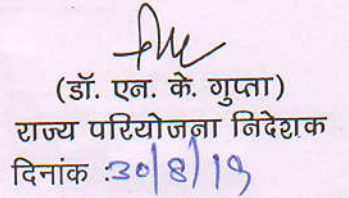 (डॉ. एन. के. गुप्ता)
राज्य परियोजना निदेशक
दिनांक :30/8/19